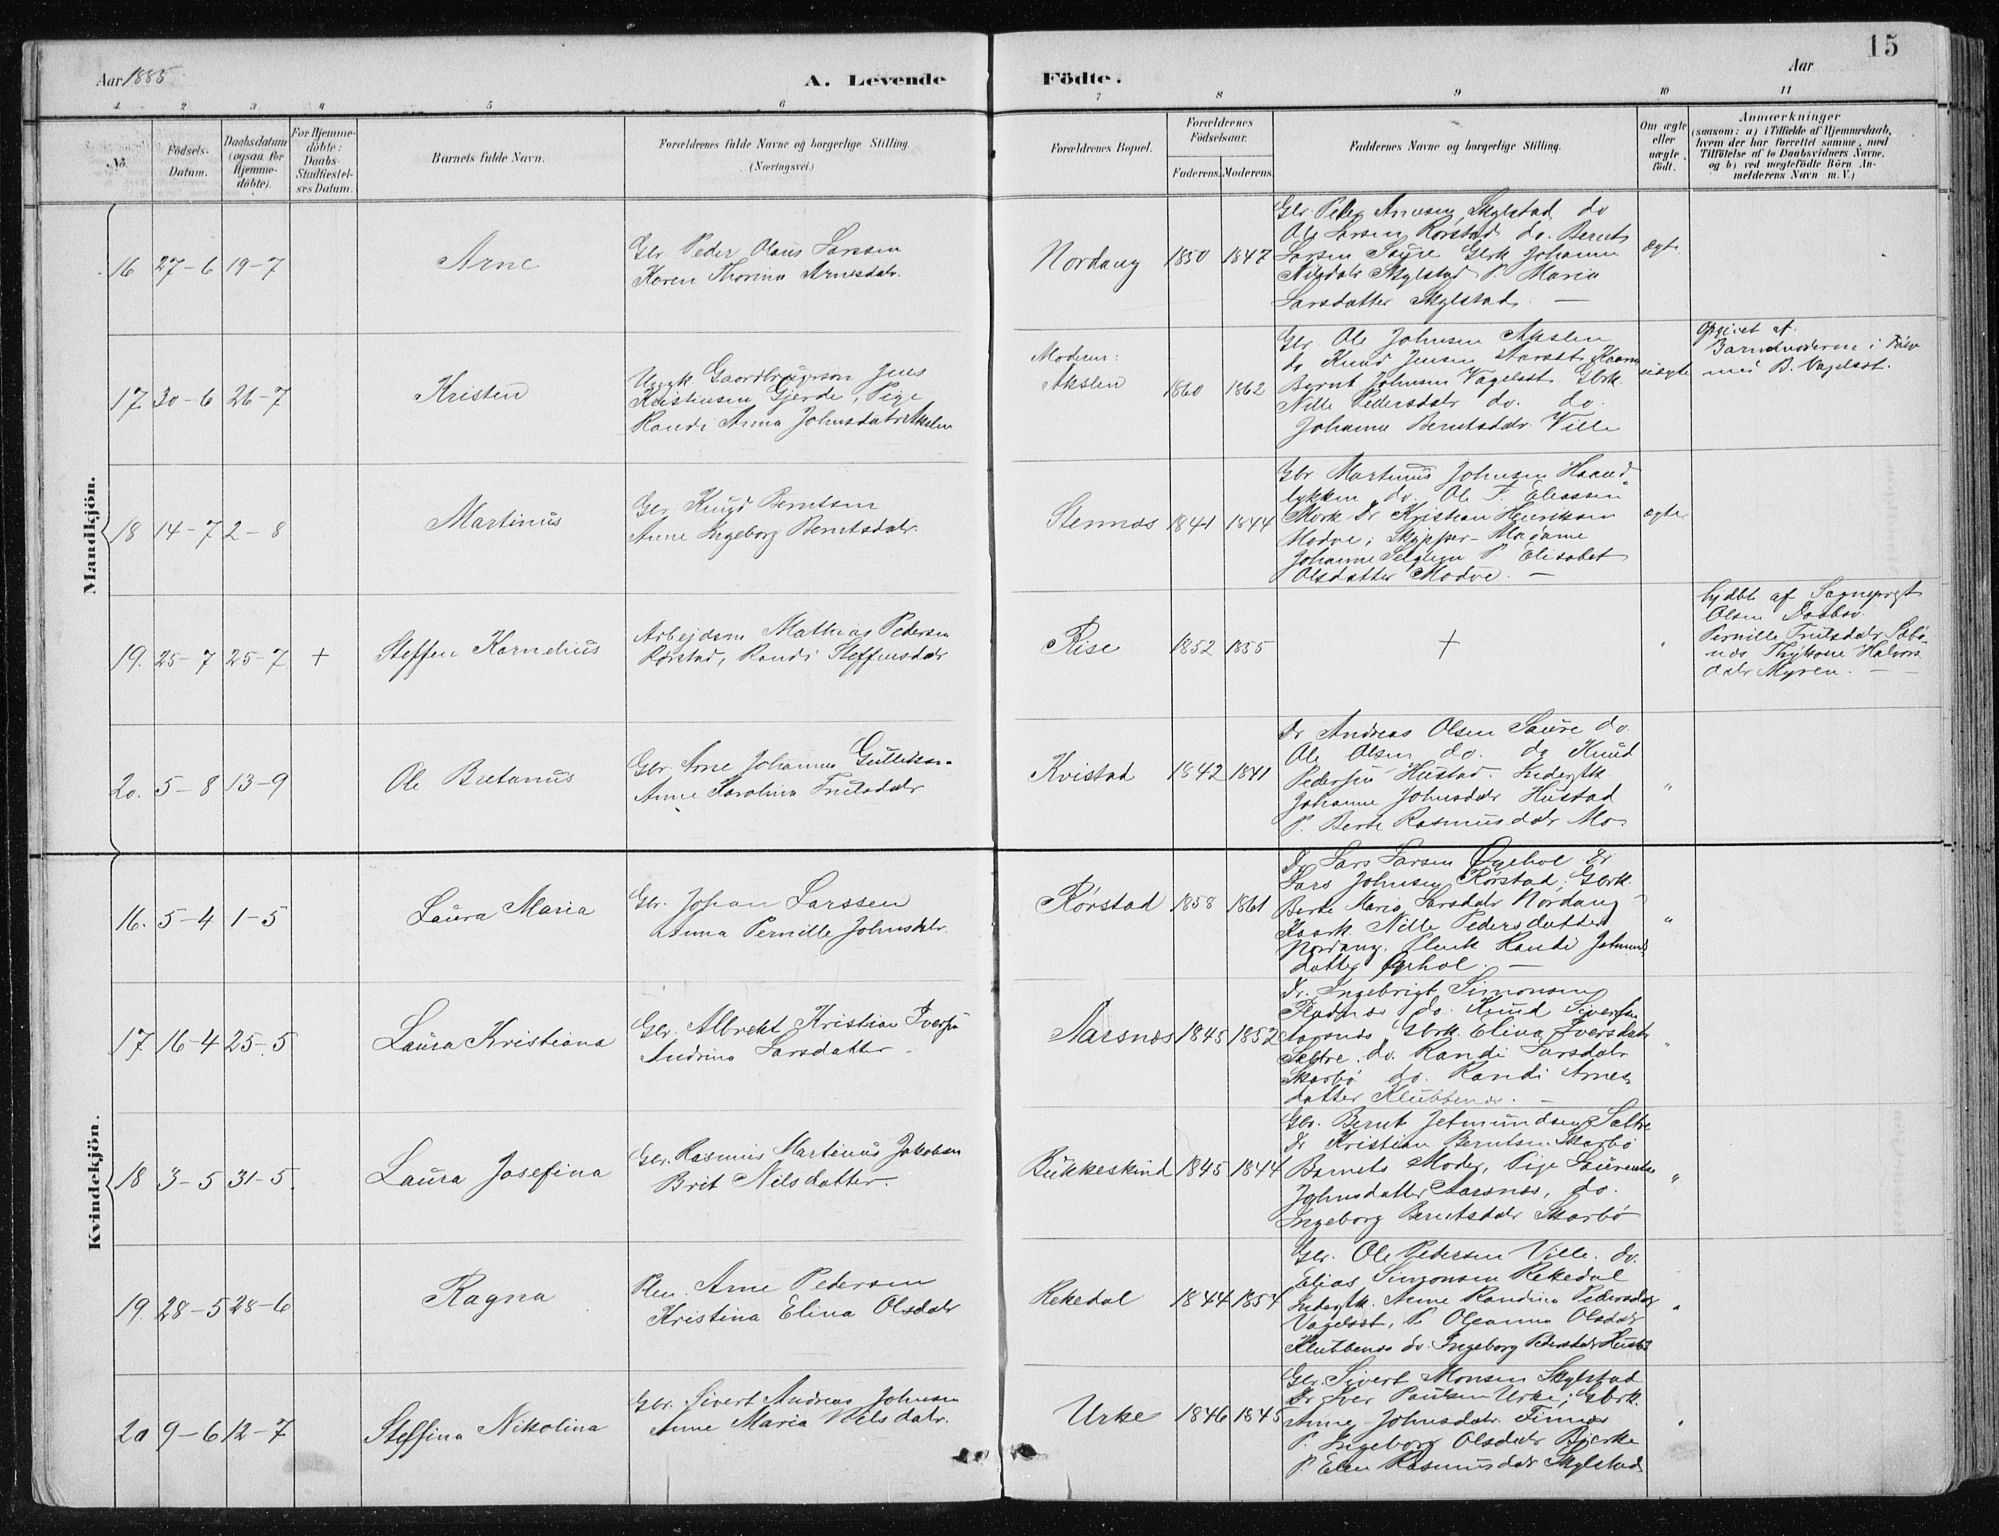 15
Aar 1885
A. Levende Födte.
Aar
1 2 3 4 5 6 7 8 9 10 11
No.
Födsels-Datum.
Daabsdatum (ogsaa for Hjemme-döbte).
For Hjemme-döbte: Daabs-Stadfæstel-ses Datum.
Barnets fulde Navn.
Forældrenes fulde Navne og borgerlige Stilling. (Næringsvei.)
Forældrenes Bopæl.
Forældrenes Födselsaar.
Faderens. Moderens.
Faddernes Navne og borgerlige Stilling.
Om ægte eller uægte födt.
Anmærkninger
(saasom: a) i Tilfælde af Hjemmedaab,
hvem der har forrettet samme, med
Tilföielse af to Daabsvidners Navne,
og b) ved uægtefödte Börn An-
melderens Navn m. V.)
Mandkjön.
16 27-6 19-7
Arne
Gbr. Peder Olaus Larssen
Karen Thorina Arnesdatr.
Nordang 1850 1847
Gbr. Peder Arnesen Skylstad do
Ole Larsen Rörstad do. Bernt
Larsen Saure Gbrk Johanne
Nilsdatr Skylstad P. Maria
Larsdatter Skylstad. —
ægte
17 30-6 26-7
Kristen
Ugygk Gaardbrugerson Jens
Kristensen Gjerde, Pige
Randi Anna Johnsdatr Akslen
Moderen:
Akslen
1860 1862
Gbr. Ole Johnsen Akslen
do Knud Jensen Aarset
Bernt Johnsen Vagelset Gbrk.
Nille Pedersdatr do. do.
Johanne Berntsdatr. Ville
uægte
Opgivet af
Barnemoderen i
med B. Vagelset.
18 14-7 2-8
Martinus
Gbr. Knud Berntsen
Anne Ingeborg Berntsdatr.
Stennæs 1841 1844
Gbr Martinus Johnsen Haand-
lykken do. Ole P. Eliassen
Mork Dr Kristian Henriksen
Modve; Skipper- Madame
Johanne P. Elisabet
Olsdatter Modve. —
ægte
19. 25-7 25-7 +
Steffen Kornelius
Arbejdsm Mathias Pedersen
Rörstad, Randi Steffensdatr
Rise 1852 1855
+
"
hjdbt af Sogneprest
Olsen Daabsv.
Pernille Trulsdatr Sæbö-
næs Halvors
datr Myren. —
20. 5-8 13-9
Ole Bretanus
Gbr. Arne Johannes Gulliksen
Anne Karolina Trulsdatr
Kvistad 1842 1841
Dr Andreas Olsen Saure do.
Ole Olsen do. do Knud
Pedersen Hustad. Inderstk
Johanne Johnsdatr Hustad
P. Berte Rasmusdatr Mo.
"
Kvindekjön.
16. 5-4 1-5
Laura Maria
Gbr. Johan Larssen
Anna Pernille Johnsdatr.
Rörstad 1858 1861
Dr Lars Larsen Öyehol Dr
Lars Johnsen Rörstad; Gbrk.
Berte Maria Larsdatr Nordang
Kaark. Nille Pedersdatter
Nordang. Randi Johnns
datter Öyehol. —
"
17 16-4 25-5
Laura Kristiana
Gbr. Albrekt Kristian Iversen
Andrina Larsdatter
Aarsnæs 1845 1852
Dr. Ingebrigt Simonsen
do. Knud Sivertsen
Aarsnæs Gbrk. Elina Iversdatr
Sæltre. do. Randi Larsdatr
Skarbö do. Randi Arnes
datter Klubbenæs. —
"
18 3-5 31-5
Laura Josefina
Gbr. Rasmus Martinus Jakobsen
Brit Nilsdatter.
Bukkeskind 1845 1844
Gbr. Bernt Jetmundsen Sæltre
Dr Kristian Berntsen Skarbö
Barnets Moder, Pige
Johnsdatter Aarsnæs, do.
Ingeborg Berntsdatr Skarbö
"
19. 28-5 28-6
Ragna
Plm. Arne Pedersen
Kristina Elina Olsdatr
Rekedal 1844 1854
Gbr. Ole Pedersen Ville. do.
Elias Simonsen Rekedal
Inderstk. Anne Randina Pedersdatr
Vagelset, P Oleanna Olsdatr
Klubbenæs do. Ingeborg Pedersdatr
"
20 9-6 12-7
Steffina Nikolina
Gbr. Sivert Andreas Johnsen
Anne Maria Nilsdatr.
Urke 1846 1845
Gbr. Sivert Monsen Skylstad
Dr Iver Paulsen Urke; Gbrk.
Anne Johnsdatr. Finnæs
P. Ingeborg Olsdatr Bjerke
P Elen Rasmusdatr Skylstad
"